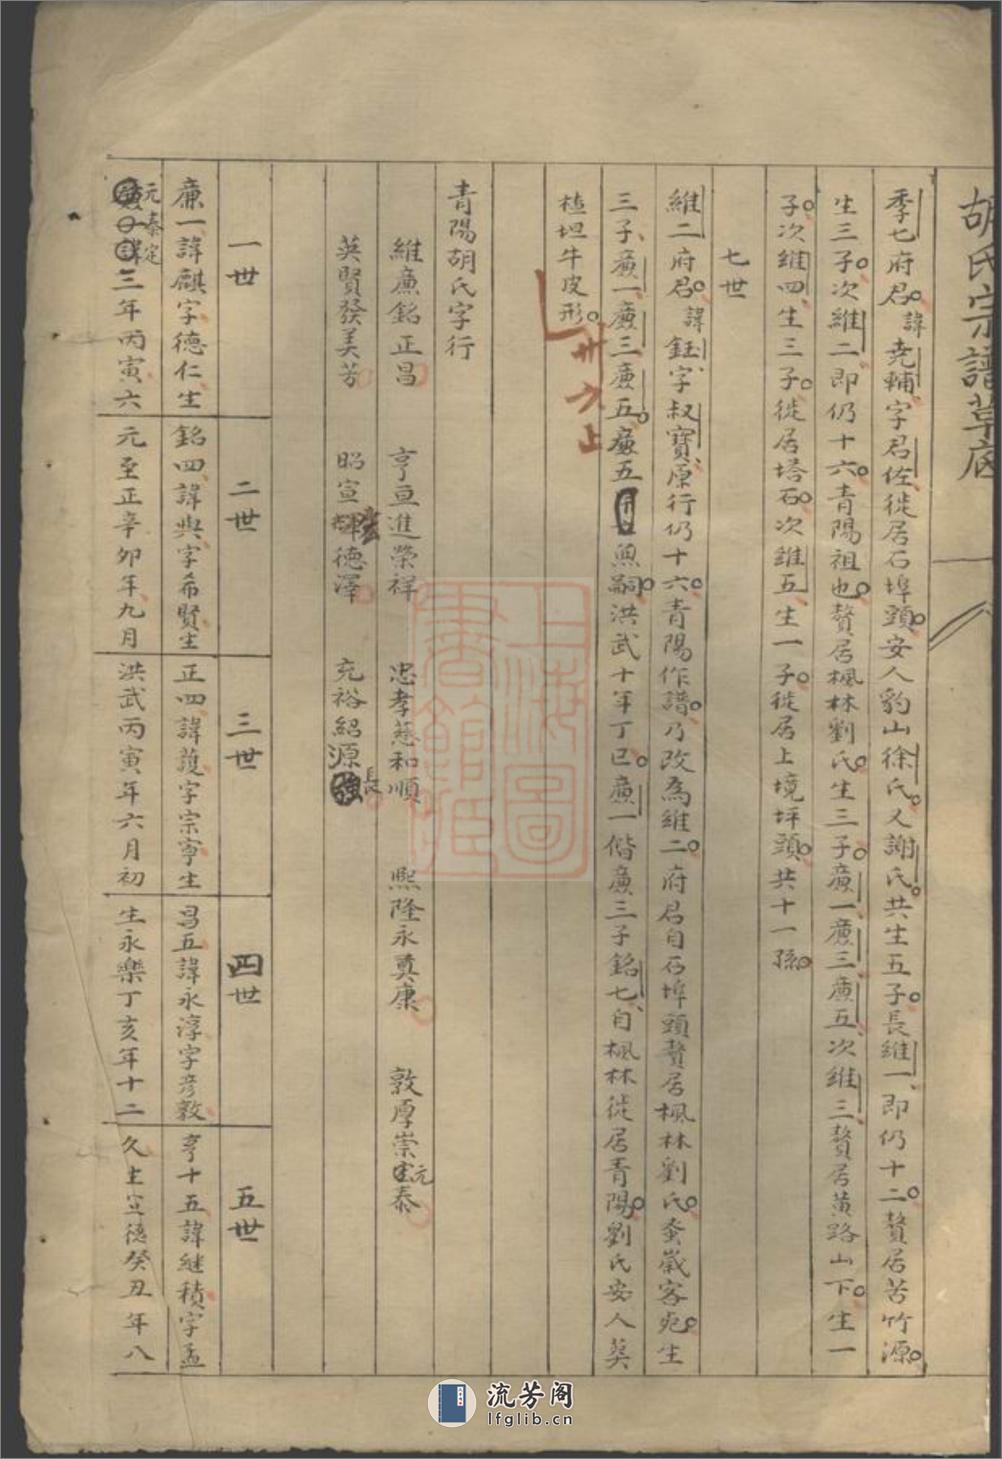 胡氏宗譜草底
季七府君諱堯輔字君佐徙居石埠頭安人豹山徐氏又謝氏共生五子長維一即仍十二贅居苦竹源
生三子次維二即仍十六青陽祖也贅居楓林劉氏生三子廉一廉三廉五次維三贅居黃路山下生一
子次維四生三子徙居塔石次維五生一子徙居上境坪頭共十一孫
七世
維二府君諱鈺字叔寶原行仍十六青陽作譜乃改為維二府君自石埠頭贅居楓林劉氏蚤歲客死生
三子廉一廉三廉五廉五無嗣洪武十年丁巳廉一偕廉三子銘七自楓林徙居青陽劉氏安人葬
植坦牛皮形
卅六上
青陽胡氏字行
維廉銘正昌 亨亘進榮祥 忠孝慈和順 熙隆永奠康 敦厚崇元泰
英賢發美芳 昭宣德澤 充裕紹源長
一世 二世 三世 四世 五世
廉一諱麒字德仁生 銘四諱與字希賢生 正四諱護字宗寧生 昌五諱永淳字彥敦 亨十五諱継積字孟
元泰定三年丙寅六 元至正辛卯年九月 洪武丙寅年六月初 生永樂丁亥年十二 久生宣德癸丑年八
上海圖書館藏
流芳阁
lfglib.cn